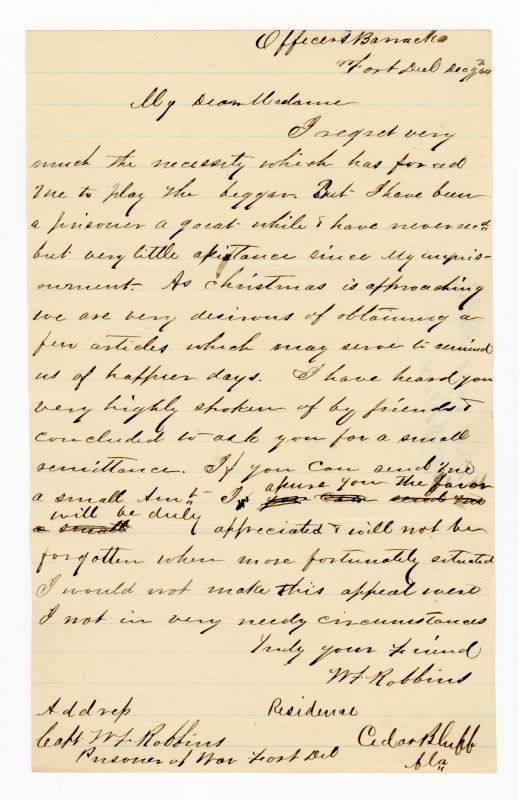 Officers Barracks
Fort Del Dec 7th 64
My Dear Madame
I regret very
much the necessity which has forced
me to play the beggar. But I have been
a prisoner a great while & have never recd
but very little assistance since my impris-
onment. As christmas is approaching
we are very desirous of obtaining a
few articles which may serve to remind
us of happier days. I have heard you
very highly spoken of by friends &
concluded to ask you for a small
remittance. If you can send me
a small Amt I assure you the favor
will be duly appreciated & will not be
forgotten when more fortunately situated
I would not make this appeal were
I not in very needy circumstances
Truly your Friend
W F Robbins
Address
Capt W F Robbins
Prisoner of War Fort Del
Residence
Cedar Bluff
Ala